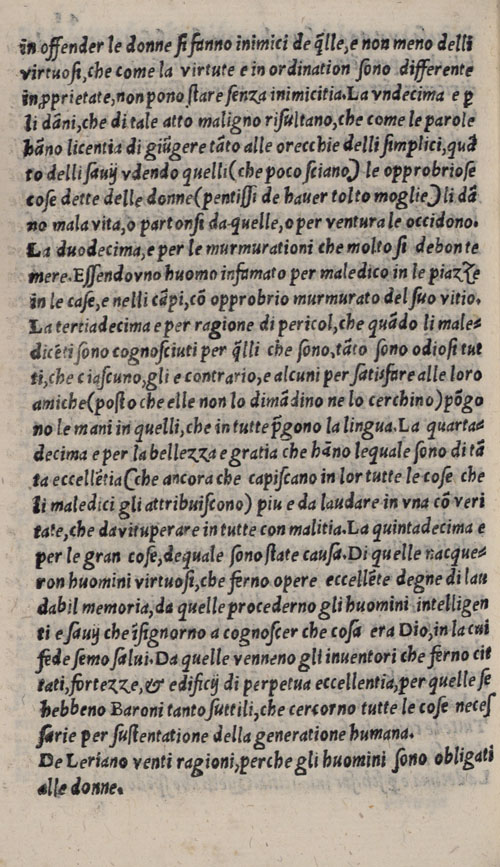 in offender le donne ſi fanno inimici de q̃lle, e non meno delli
virtuoſi, che come la virtute e in ordination ſono differente
in ꝓprietate, non pono ſtare ſenza inimicitia. La vndecima e p̱
li dãni, che di tale atto maligno riſultano, che come le parole
hãno licentia di giũgere tãto alle orecchie delli ſimplici, quã
to delli ſauij vdendo quelli (che poco ſciano) le opprobrioſe
coſe dette delle donne (pentiſſi de hauer tolto moglie) li dã
no mala vita, o partonſi da quelle, o per ventura le occidono.
La duodecima, e per le murmurationi che molto ſi debon te
mere. Eſſendo vno huomo infamato per maledico in le piazze
in le caſe, e nelli cãpi, cõ opprobrio murmurato del ſuo vitio.
La tertiadecima e per ragione di pericol, che quãdo li male-
dicẽti ſono cognoſciuti per q̃lli che ſono, tãto ſono odioſi tut
ti, che ciaſcuno, gli e contrario, e alcuni per satisfare alle loro
amiche (poſto che elle non lo dimãdino ne lo cerchino) põgo
no le mani in quelli, che in tutte p̃gono la lingua. La quarta-
decima e per la bellezza e gratia che hãno lequale ſono di tã
ta eccellẽtia (che ancora che capiſcano in lor tutte le coſe che
li maledici gli attribuiſcono) piu e da laudare in vna cõ veri
tate, che da vituperare in tutte con malitia. La quintadecima e
per le gran coſe, dequale ſono ſtate cauſa. Di quelle nacque-
ron huomini virtuoſi, che ferno opere eccellẽte degne di lau
dabil memoria, da quelle procederno gli huomini intelligen
ti e ſauij che iſignorno a cognoſcer che coſa era Dio, in la cui
fede ſemo ſalui. Da quelle venneno gli inuentori che ferno cit
tati, fortezze, & edificij di perpetua eccellentia, per quelle ſe
hebbeno Baroni tanto ſuttili, che cercorno tutte le coſe neceſ
ſarie per ſuſtentatione della generatione humana.
De Leriano venti ragioni, perche gli huomini ſono obligati
alle donne.